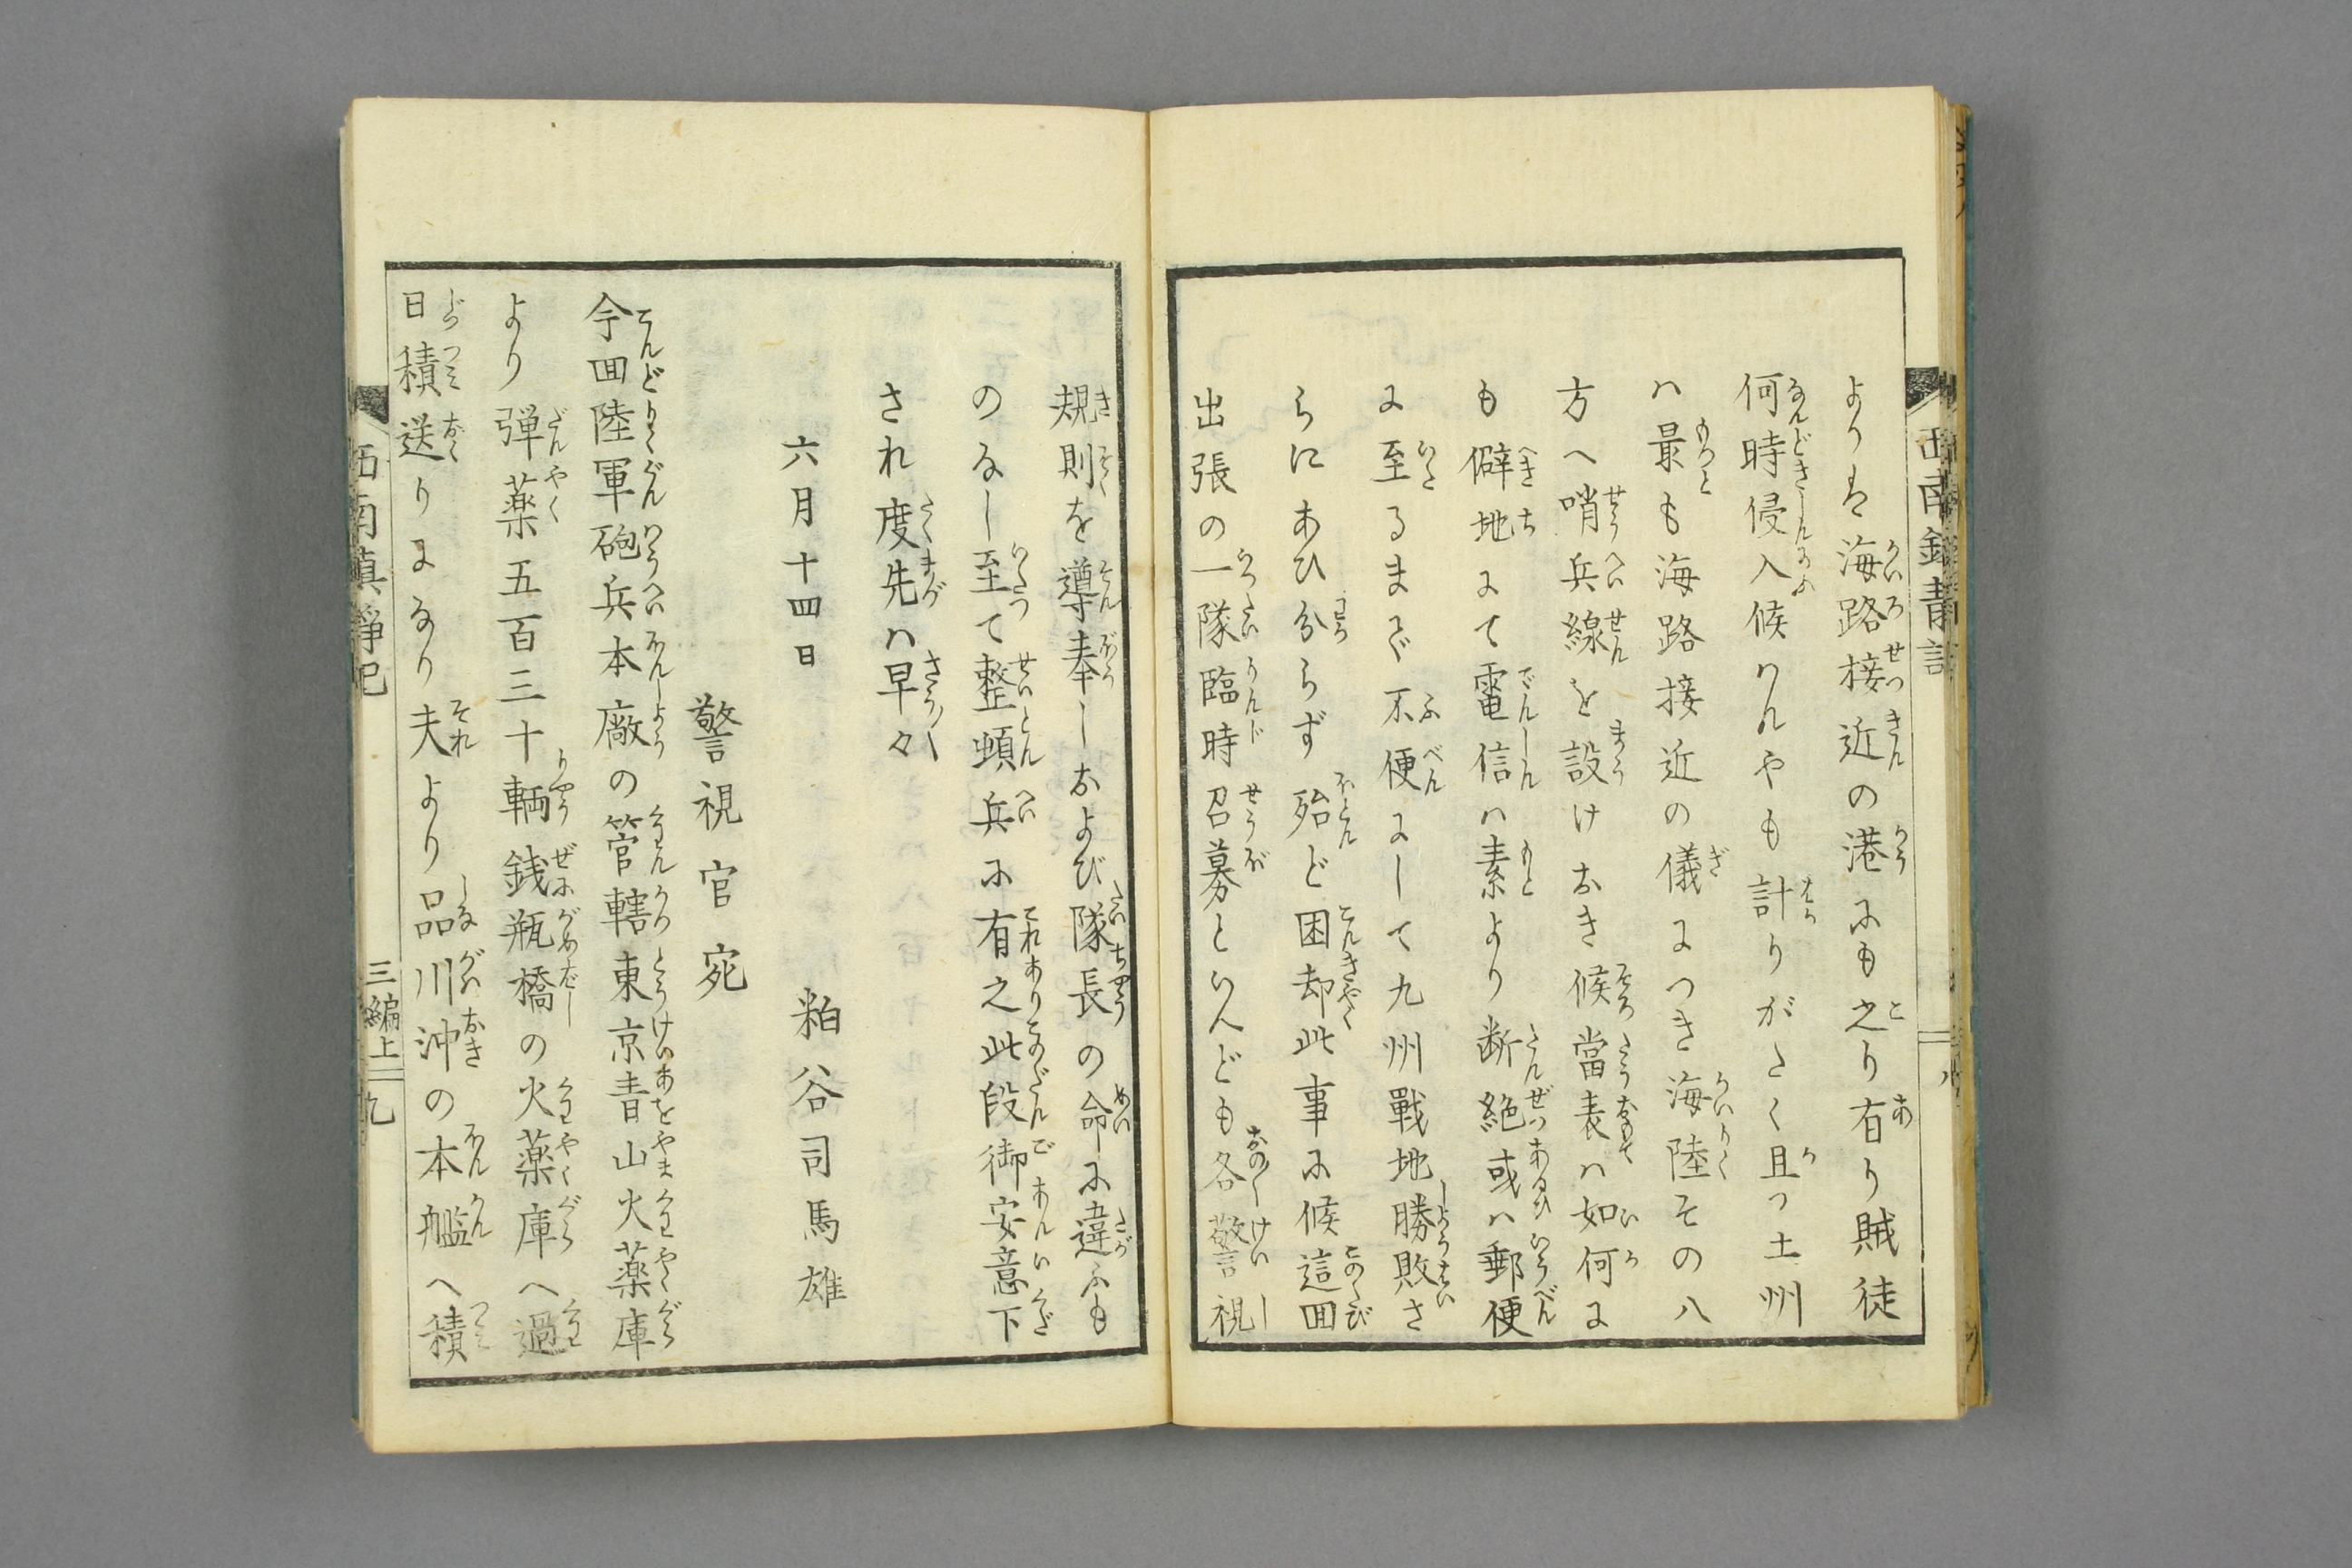 よりは海路接近の港にも之り有り賊徒
何時侵入候はんやも計りがたく且つ土州
ハ最も海路接近の儀につき海陸その八
方へ哨兵線を設けおき候當表ハ如何に
も僻地にて電信ハ素より断絶或ハ郵便
に至るまで不便にして九州戰地勝敗さ
らにあひ分らず殆ど困却此事に候這回
出張の一隊臨時召募といへども各警視
規則を導奉しおよび隊長の命に違ふも
のなし至て整頓兵に有之此段御安意下
され度先ハ早々
六月十四日
粕谷司馬雄
警視官宛
今回陸軍砲兵本廠の管轄東京青山火薬庫
より弾薬五百三十輌銭瓶橋の火薬庫へ過
日積送りになり夫より品川沖の本艦へ積
西南鎮静記
三編上
九